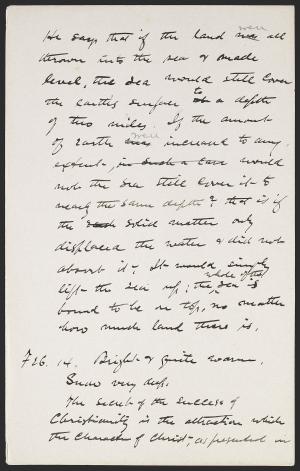 were
He says that if the land was all
thrown into the sea & made
level, the sea would still cover
the earth's surface to a depth
of two miles. If the amount
were
of earth was increased to any
extent, in such a case would
not the sea still cover it to
nearly the same depth? that is if
the such solid matter only
displaced the water & did not
absorb it. It would simply
whole of the
lift the sea up; the sea is
bound to be on top, no matter
how much land there is.
Feb. 14. Bright & quite warm.
Snow very deep.
The secret of the success of
Christianity is the attraction which
the character of Christ, as presented in